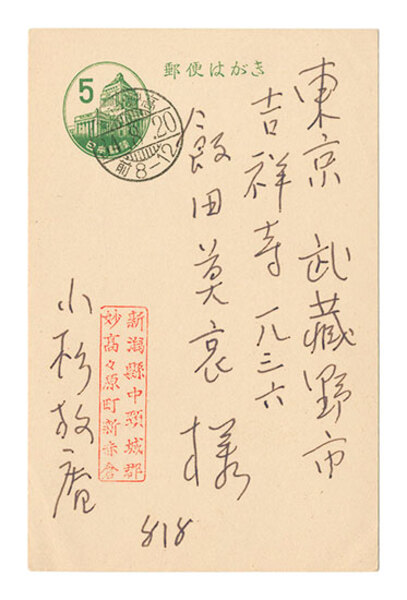 郵便はがき
5
日本郵便
20
前8-12
東京 武蔵野市
吉祥寺一八三六
飯田莫哀様
新潟縣中頸城郡
妙高々原町新赤倉
小杉放庵
8 18